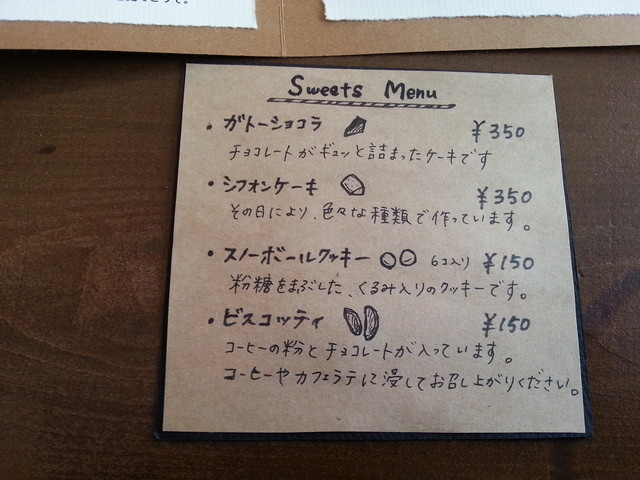 Sweets Menu
・ガトーショコラ ¥350
チョコレートがギュッと詰まったケーキです
・シフォンケーキ ¥350
その日により、色々な種類で作っています。
・スノーボールクッキー 6コ入り ¥150
粉糖をまぶした、くるみ入りのクッキーです。
・ビスコッティ ¥150
コーヒーの粉とチョコレートが入っています。
コーヒーやカフェラテに浸してお召し上がりください。